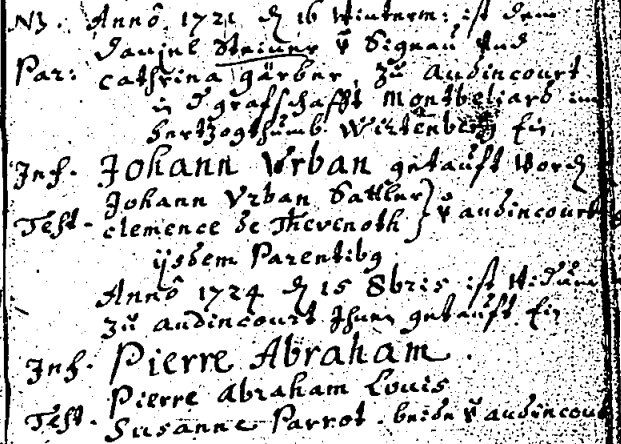 NB. Annô 1721 dñ 16 Winterm: ist dem
Daniel Steiner v̄ Signau Und
Par: Cathrina gärber, zu Audincourt
in d grafschafft Montbeliard im
hertzogthumb Wirtenberg Ein
Inf. Johann Vrban getaufft Word
Johann Vrban Sattler
Test. Clemence de Thevenoth } v̄ audincourt
ijsdem Parentibg
Annô 1724 dñ 15 8bris ist Widum
zu audincourt Ihnen getaufft Ein
Inf. Pierre Abraham.
Pierre Abraham Louis
Test. Susanne Parrot. beide v̄ audincourt